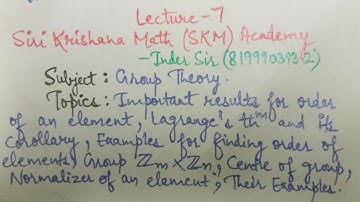 Lecture-7
Siri Krishana Math (SKM) Academy
-Inder Sir (8199903932)
Subject: Group Theory.
Topics: Important results for order
of an element, Lagrange's thm and its
Corollary, Examples for finding order of
elements, Group Zm x Zn, Centre of group,
Normalizer of an element, Their Examples.